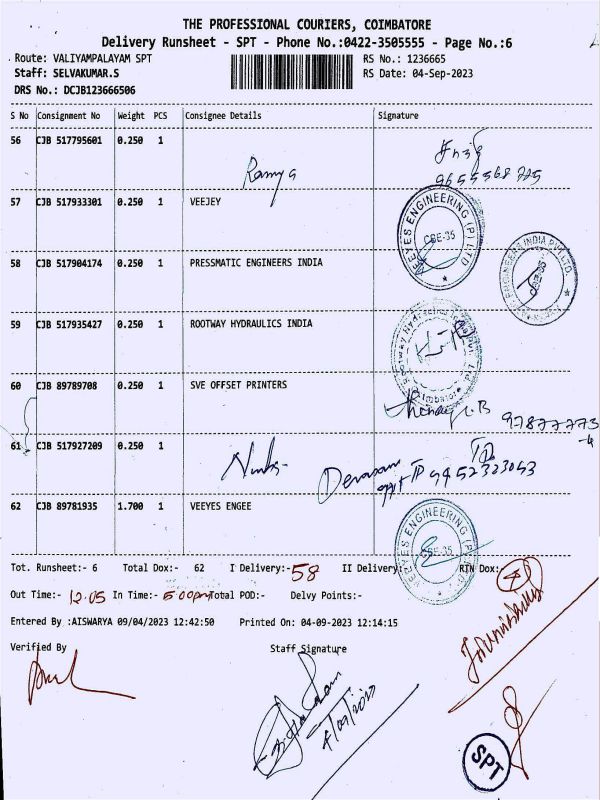 THE PROFESSIONAL COURIERS, COIMBATORE
Delivery Runsheet - SPT - Phone No.:0422-3505555 - Page No.:6
Route: VALIYAMPALAYAM SPT RS No.: 1236665
Staff: SELVAKUMAR.S RS Date: 04-Sep-2023
DRS No.: DCJB123666506
S No Consignment No Weight PCS Consignee Details Signature
56 CJB 517795601 0.250 1
Ramya 9655568775
57 CJB 517933301 0.250 1 VEEJEY
VEEYES ENGINEERING (P) LTD
CBE-35
58 CJB 517904174 0.250 1 PRESSMATIC ENGINEERS INDIA
ENGINEERS INDIA PVT LTD.
CBE-35
59 CJB 517935427 0.250 1 ROOTWAY HYDRAULICS INDIA
Rootway Hydraulics India Pvt Ltd
Coimbatore
60 CJB 89789708 0.250 1 SVE OFFSET PRINTERS
61 CJB 517927209 0.250 1
62 CJB 89781935 1.700 1 VEEYES ENGEE
VEEYES ENGINEERING (P) LTD
CBE-35
Tot. Runsheet:- 6 Total Dox:- 62 I Delivery:- 58 II Delivery:- RTN Dox: 4
Out Time:- 12.05 In Time:- 5:00pm Total POD:- Delvy Points:-
Entered By :AISWARYA 09/04/2023 12:42:50 Printed On: 04-09-2023 12:14:15
Verified By Staff Signature
SPT